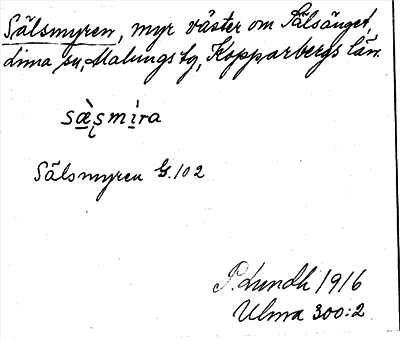 Sälsmyren, myr väster om Sälsänget,
Lima sn, Malungs tg, Kopparbergs län.
sæ̀ʂmi̱ra
Sälsmyren G.102
P. Lundh 1916
Ulma 300:2